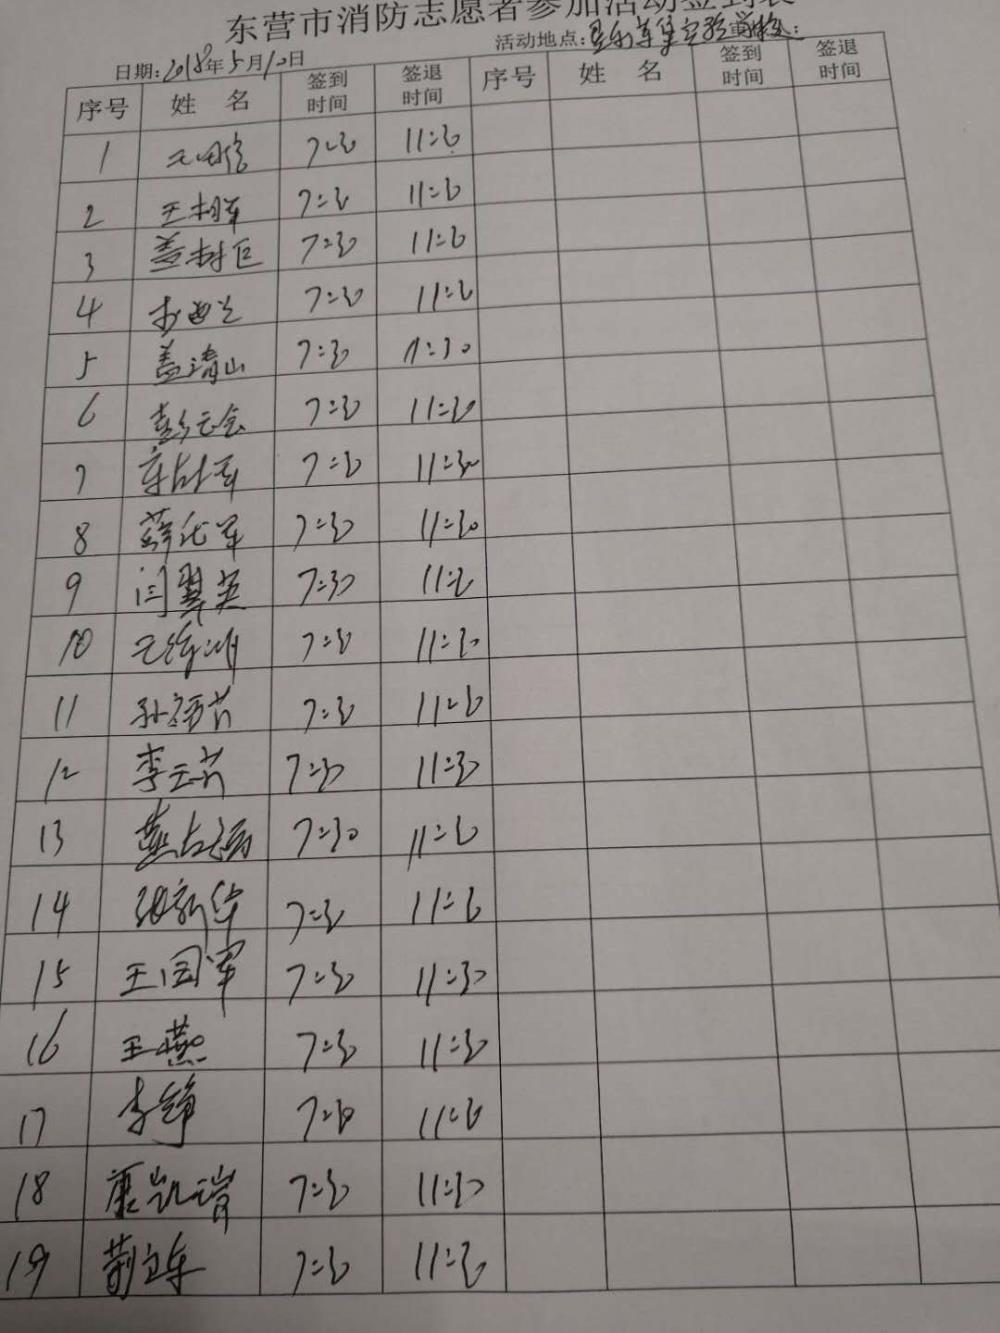 东营市消防志愿者参加活动签到表
日期:2018年5月10日 活动地点:
序号 姓名 签到时间 签退时间 序号 姓名 签到时间 签退时间
1 7:30 11:30
2 王相军 7:30 11:30
3 盖树臣 7:30 11:30
4 7:30 11:30
5 盖清山 7:30 11:30
6 彭元会 7:30 11:30
7 7:30 11:30
8 薛化军 7:30 11:30
9 闫翠英 7:30 11:30
10 7:30 11:30
11 孙福芳 7:30 11:30
12 李云芳 7:30 11:30
13 燕占福 7:30 11:30
14 张新华 7:30 11:30
15 王国军 7:30 11:30
16 王燕 7:30 11:30
17 李铮 7:30 11:30
18 康凯增 7:30 11:30
19 荆立车 7:30 11:30